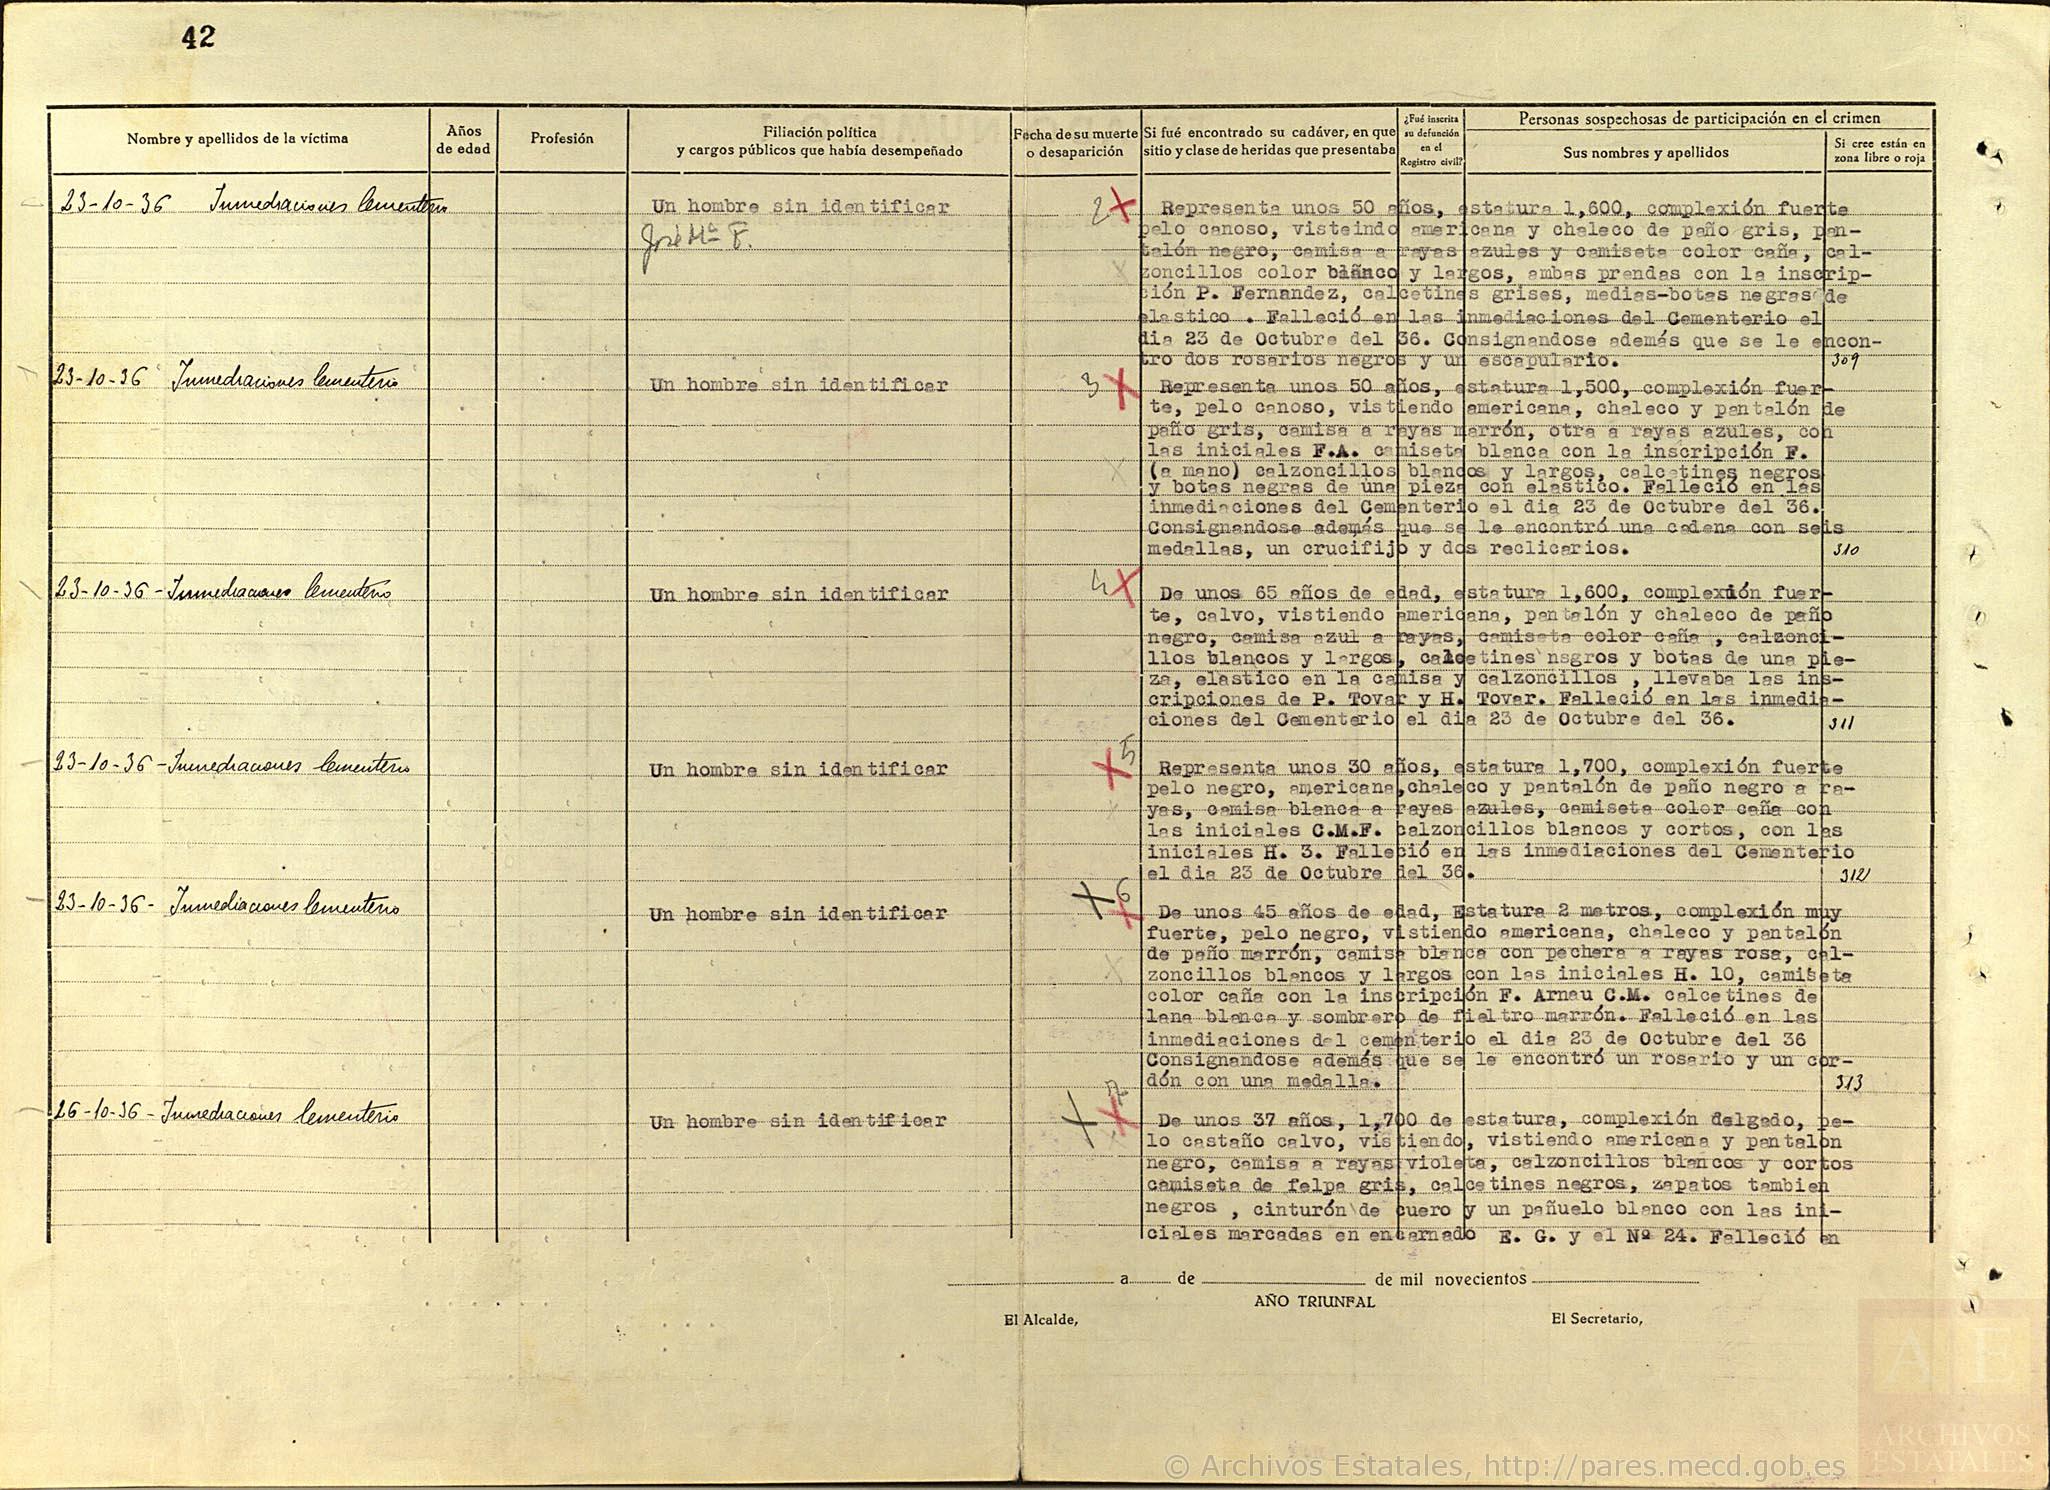 42
Nombre y apellidos de la víctima
Años
de edad
Profesión
Filiación política
y cargos públicos que había desempeñado
Fecha de su muerte
o desaparición
Si fué encontrado su cadáver, en que
sitio y clase de heridas que presentaba
¿Fué inscrita
su defunción
en el
Registro civil?
Personas sospechosas de participación en el crimen
Sus nombres y apellidos
Si cree están en
zona libre o roja
23-10-36 Inmediaciones Cementerio
Un hombre sin identificar
José Mª F.
2
Representa unos 50 años, estatura 1,600, complexión fuerte
pelo canoso, visteindo americana y chaleco de paño gris, pan-
talón negro, camisa a rayas azules y camiseta color caña, cal-
zoncillos color blanco y largos, ambas prendas con la inscrip-
ción P. Fernandez, calcetines grises, medias-botas negras de
elastico . Falleció en las inmediaciones del Cementerio el
dia 23 de Octubre del 36. Consignandose además que se le encon-
tro dos rosarios negros y un escapulario.
309
23-10-36 Inmediaciones Cementerio
Un hombre sin identificar
3
Representa unos 50 años, estatura 1,500, complexión fuer-
te, pelo canoso, vistiendo americana, chaleco y pantalón de
paño gris, camisa a rayas marrón, otra a rayas azules, con
las iniciales F.A. camiseta blanca con la inscripción F.
(a mano) calzoncillos blancos y largos, calcetines negros
y botas negras de una pieza con elastico. Falleció en las
inmediaciones del Cementerio el dia 23 de Octubre del 36.
Consignandose además que se le encontró una cadena con seis
medallas, un crucifijo y dos reclicarios.
310
23-10-36 - Inmediaciones Cementerio
Un hombre sin identificar
4
De unos 65 años de edad, estatura 1,600, complexión fuer-
te, calvo, vistiendo americana, pantalón y chaleco de paño
negro, camisa azul a rayas, camiseta color caña , calzonci-
llos blancos y largos, calcetines nsgros y botas de una pie-
za, elastico en la camisa y calzoncillos , llevaba las ins-
cripciones de P. Tovar y H. Tovar. Falleció en las inmedia-
ciones del Cementerio el dia 23 de Octubre del 36.
311
23-10-36 - Inmediaciones Cementerio
Un hombre sin identificar
5
Representa unos 30 años, estatura 1,700, complexión fuerte
pelo negro, americana,chaleco y pantalón de paño negro a ra-
yas, camisa blanca a rayas azules, camiseta color caña con
las iniciales C.M.F. calzoncillos blancos y cortos, con las
iniciales H. 3. Falleció en las inmediaciones del Cementerio
el dia 23 de Octubre del 36.
312
23-10-36 - Inmediaciones Cementerio
Un hombre sin identificar
6
De unos 45 años de edad, Estatura 2 metros, complexión muy
fuerte, pelo negro, vistiendo americana, chaleco y pantalón
de paño marrón, camisa blanca con pechera a rayas rosa, cal-
zoncillos blancos y largos con las iniciales H. 10, camiseta
color caña con la inscripción F. Arnau C.M. calcetines de
lana blanca y sombrero de fieltro marrón. Falleció en las
inmediaciones del cementerio el dia 23 de Octubre del 36
Consignandose además que se le encontró un rosario y un cor-
dón con una medalla.
313
26-10-36 - Inmediaciones Cementerio
Un hombre sin identificar
7
De unos 37 años, 1,700 de estatura, complexión delgado, pe-
lo castaño calvo, vistiendo, vistiendo americana y pantalon
negro, camisa a rayas violeta, calzoncillos blancos y cortos
camiseta de felpa gris, calcetines negros, zapatos tambien
negros , cinturón de cuero y un pañuelo blanco con las ini-
ciales marcadas en encarnado E. G. y el Nº 24. Falleció en
a de de mil novecientos
AÑO TRIUNFAL
El Alcalde,
El Secretario,
AE
ARCHIVOS
ESTATALES
© Archivos Estatales, http://pares.mecd.gob.es